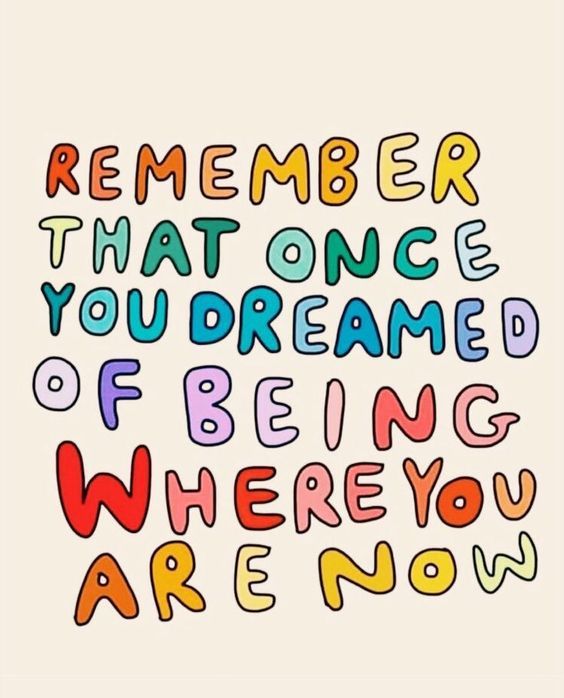 REMEMBER
THAT ONCE
YOU DREAMED
OF BEING
WHERE YOU
ARE NOW